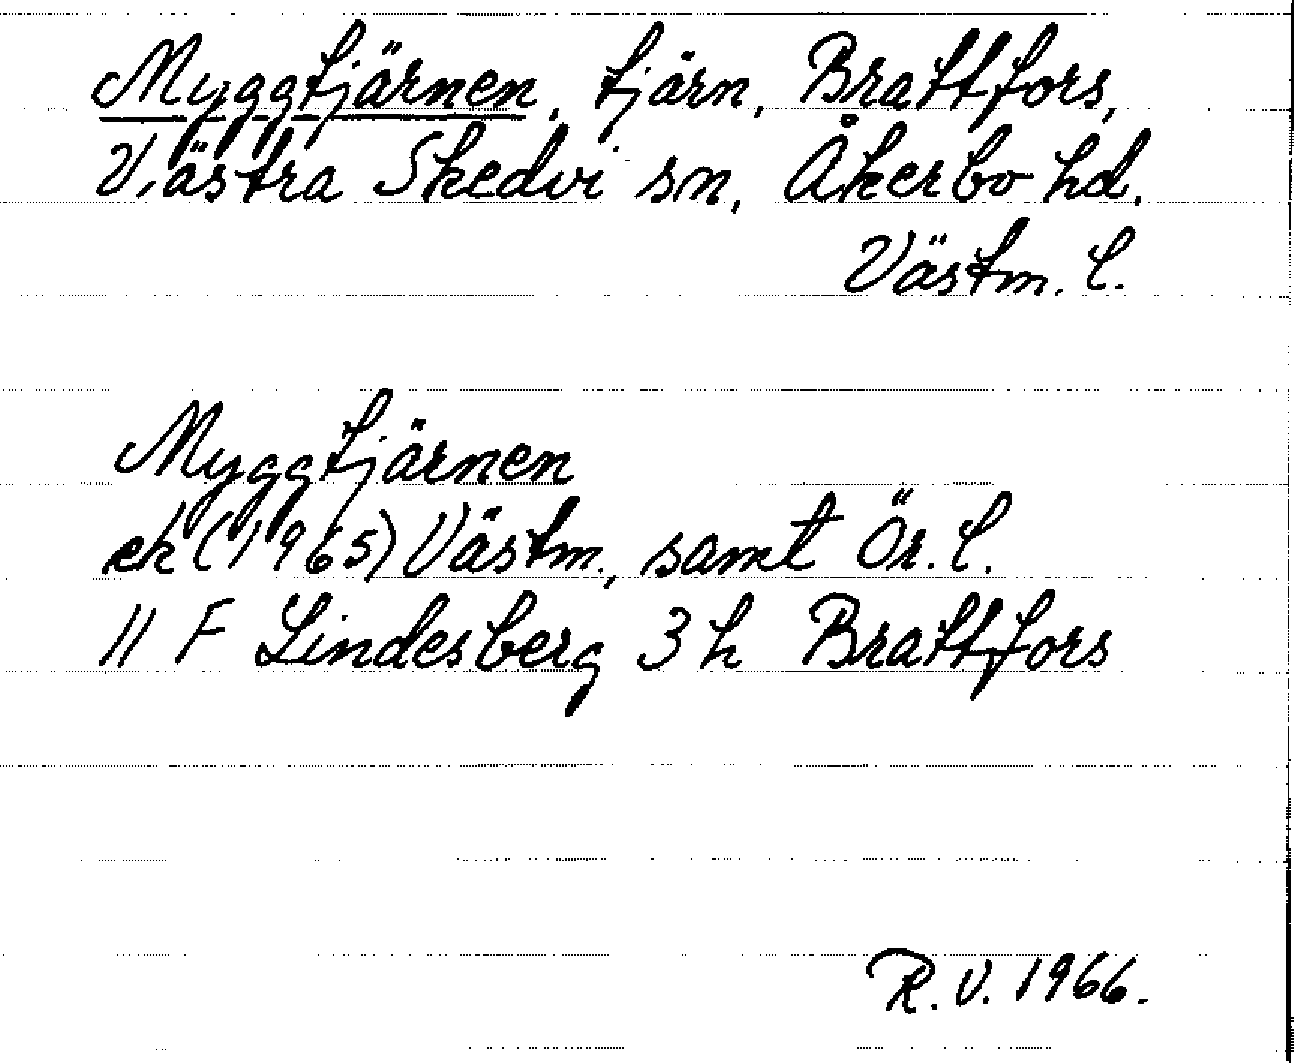 Myggtjärnen, tjärn, Brattfors,
Västra Skedvi sn, Åkerbo hd.
Västm. l.
Myggtjärnen
ek (1965) Västm., samt Ör. l.
11 F Lindesberg 3 h Brattfors
R. V. 1966.